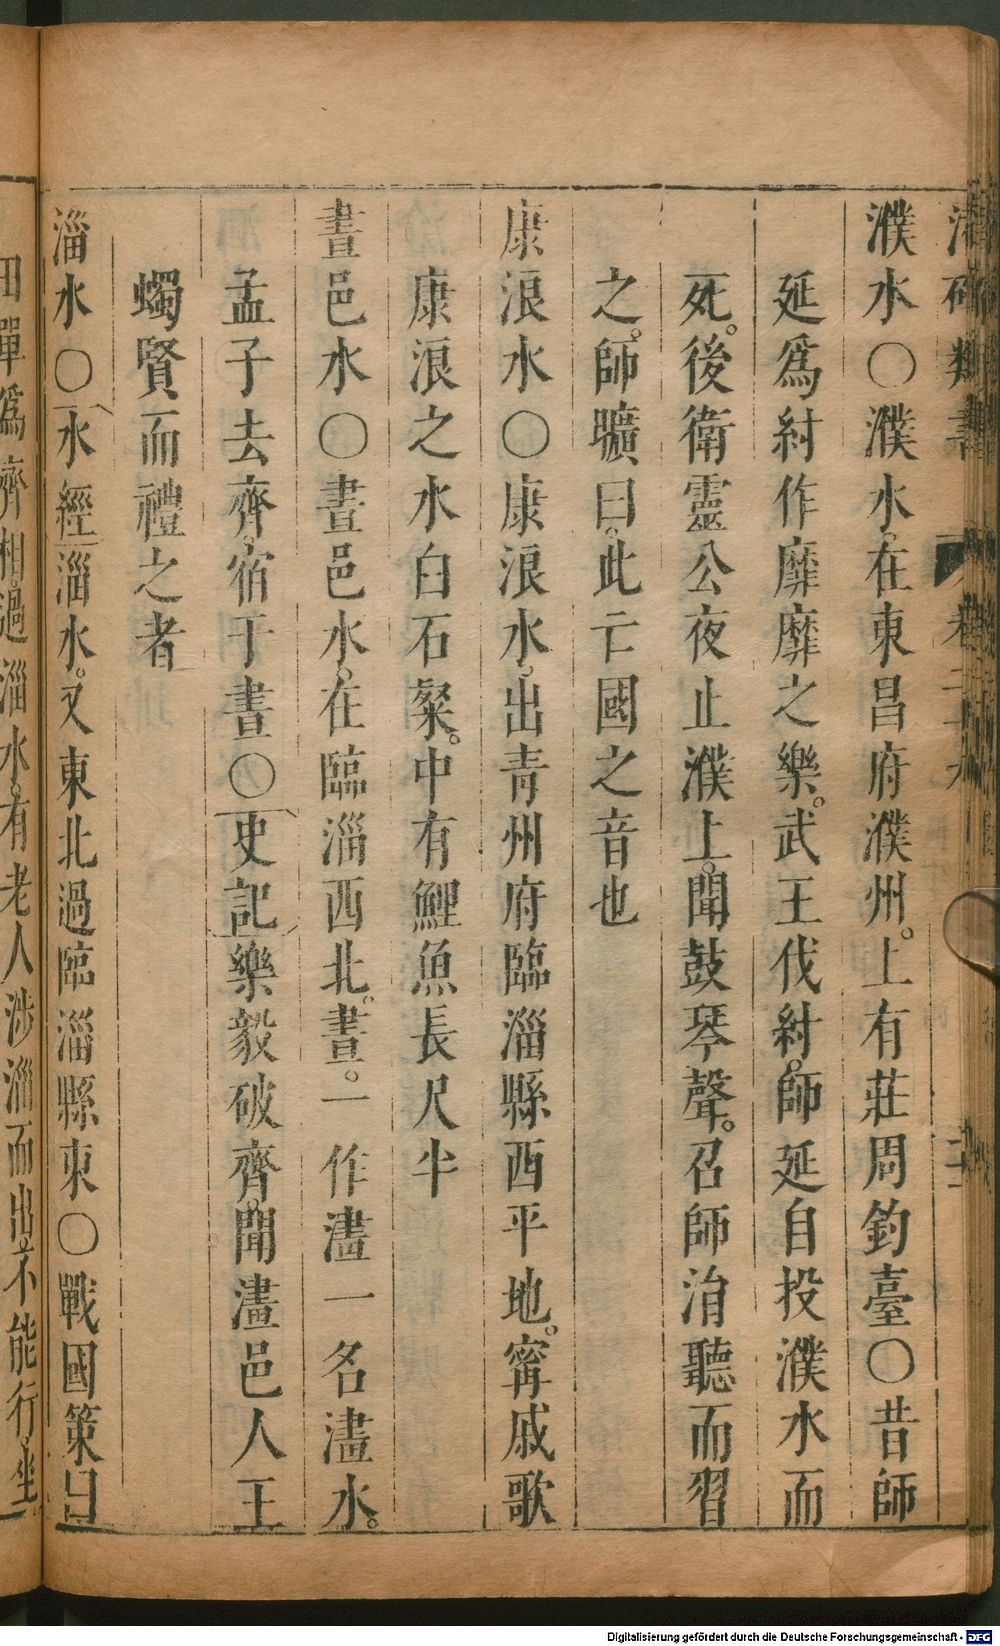 濮水○濮水在東昌府濮州。上有莊周釣臺○昔師
延爲紂作靡靡之樂。武王伐紂。師延自投濮水而
死。後衛靈公夜止濮上。聞鼓琴聲。召師涓聽而習
之。師曠曰。此亡國之音也
康浪水○康浪水。出青州府臨淄縣西平地。甯戚歌
康浪之水白石粲。中有鯉魚長尺半
晝邑水○晝邑水。在臨淄西北。晝。一作澅一名澅水。
孟子去齊。宿于晝○史記樂毅破齊。聞澅邑人王
蠋賢而禮之者
淄水○水經淄水。又東北過臨淄縣東○戰國策曰
田單爲齊相。過淄水。有老人涉淄而出。不能行。坐
Digitalisierung gefördert durch die Deutsche Forschungsgemeinschaft - DFG